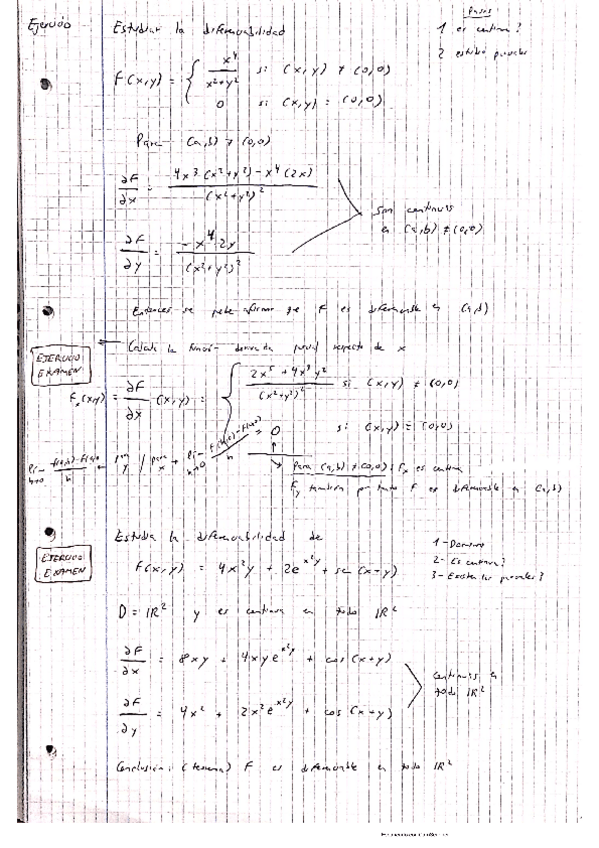 Ejercicio Estudiar la diferenciabilidad
Pasos
1 es continua?
2 estudio parciales
F(x,y) = { x⁴ / (x²+y²) si (x,y) ≠ (0,0)
0 si (x,y) = (0,0)
Para (a,b) ≠ (0,0)
∂F/∂x = (4x³(x²+y²) - x⁴(2x)) / (x²+y²)²
∂F/∂y = (-x⁴ 2y) / (x²+y²)²
Son continuas
en (a,b) ≠ (0,0)
Entonces se puede afirmar que F es diferenciable en (a,b)
EJERCICIO
EXAMEN
Calcula la función derivada parcial respecto de x
Fx(x,y) = ∂F/∂x (x,y) = { (2x⁵ + 4x³y²) / (x²+y²)² si (x,y) ≠ (0,0)
0 si (x,y) = (0,0)
para y / para x
Para (a,b) ≠ (0,0) : Fx es continua
Fy también por tanto F es diferenciable en (a,b)
EJERCICIO
EXAMEN
Estudia la diferenciabilidad de
F(x,y) = 4x²y + 2e^(x²y) + sen(x+y)
1 - Dominio
2 - Es continua?
3 - Existen las parciales?
D = ℝ² y es continua en todo ℝ²
∂F/∂x = 8xy + 4xye^(x²y) + cos(x+y)
∂F/∂y = 4x² + 2x²e^(x²y) + cos(x+y)
continuas en
todo ℝ²
Conclusión: (teorema) F es diferenciable en todo ℝ²